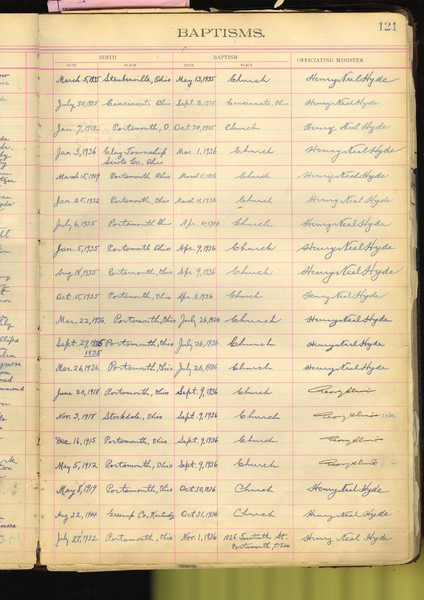 121
BAPTISMS.
BIRTH BAPTISM OFFICIATING MINISTER
DATE PLACE DATE PLACE
March 5, 1935 Steubenville, Ohio May 13, 1935 Church Henry Neel Hyde
July 30, 1935 Cincinnati Ohio Sept 1935 Cincinnati, Ohio Henry Neel Hyde
Jan 7, Portsmouth, O. Oct 30, 1935 Church Henry Neel Hyde
Jan 3, 1936 Clay Township Mar. 1, 1936 Church Henry Neel Hyde
Scioto Co., Ohio
March 15, Portsmouth Ohio March 11, 1936 Church Henry Neel Hyde
Jan 25, 1932 Portsmouth, Ohio March 11, 1936 Church Henry Neel Hyde
July 6, 1935 Portsmouth Ohio Apr. 1936 Church Henry Neel Hyde
Jan. 5, 1935 Portsmouth Ohio Apr. 9, 1936 Church Henry Neel Hyde
Aug 18, 1935 Portsmouth, Ohio Apr. 9, 1936 Church Henry Neel Hyde
Oct. 15, 1935 Portsmouth, Ohio Apr. 11, 1936 Church Henry Neel Hyde
Mar. 22, 1936 Portsmouth, Ohio July 26, 1936 Church Henry Neel Hyde
Sept. 29, 1935 Portsmouth, Ohio July 26, 1936 Church Henry Neel Hyde
1935
Mar. 26, 1936 Portsmouth, Ohio July 26, 1936 Church Henry Neel Hyde
June 20, 1918 Portsmouth, Ohio Sept. 9, 1936 Church
Nov. 3, 1918 Stockdale, Ohio Sept. 9, 1936 Church
Dec. 16, 1915 Portsmouth, Ohio Sept. 9, 1936 Church
May 5, 1912 Portsmouth, Ohio Sept. 9, 1936 Church
May 8, 1919 Portsmouth, Ohio Oct 30, 1936 Church Henry Neel Hyde
Aug 22, 1904 Greenup Co. Kentucky Oct 31, 1936 Church Henry Neel Hyde
July 28, 1932 Portsmouth, Ohio Nov. 1, 1936 St. Henry Neel Hyde
Portsmouth, Ohio